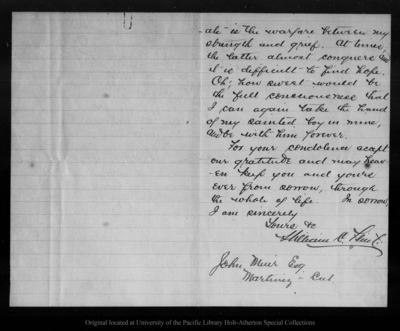 -ate is the warfare between my
strength and grief. At times,
the latter almost conquers and
it is difficult to find hope.
Oh, how sweet would be
the full consciousness that
I can again take the hand
of my sainted boy in mine,
and be with him forever.
For your condolence accept
our gratitude and may heav-
-en keep you and yours
ever from sorrow, through
the whole of life. In sorrow,
I am sincerely
Yours, &c
William C.
John Muir Esq
Martinez - Cal.
Original located at University of the Pacific Library Holt-Atherton Special Collections